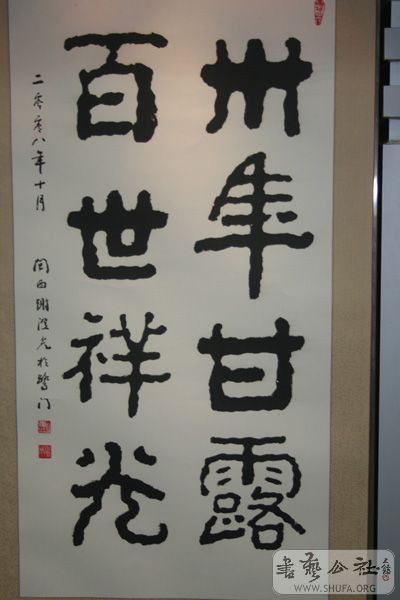 卅年甘露
百世祥光
二零零八年十月 閩西謝澄光於鷺门
書藝公社
WWW.SHUFA.ORG